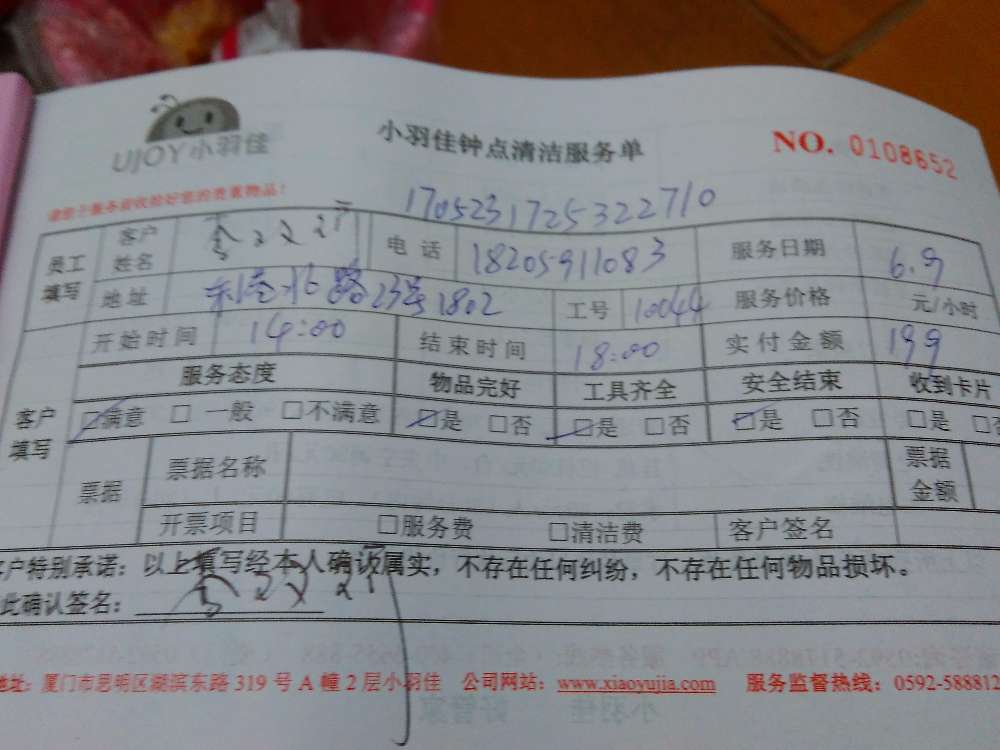 UJOY小羽佳
小羽佳钟点清洁服务单
NO. 0108652
请您于服务前收拾好您的贵重物品!
1705231725322710
员工填写 客户姓名 电话 18205911083 服务日期 6.9
地址 北路23号1802 工号 10044 服务价格 元/小时
开始时间 14:00 结束时间 18:00 实付金额 199
服务态度 物品完好 工具齐全 安全结束 收到卡片
客户填写 ☑满意 □一般 □不满意 ☑是 □否 ☑是 □否 ☑是 □否 □是 □否
票据 票据名称 票据金额
开票项目 □服务费 □清洁费 客户签名
客户特别承诺:以上填写经本人确认属实,不存在任何纠纷,不存在任何物品损坏。
此确认签名:
地址:厦门市思明区湖滨东路 319 号 A 幢 2 层小羽佳 公司网站:www.xiaoyujia.com 服务监督热线:0592-588812